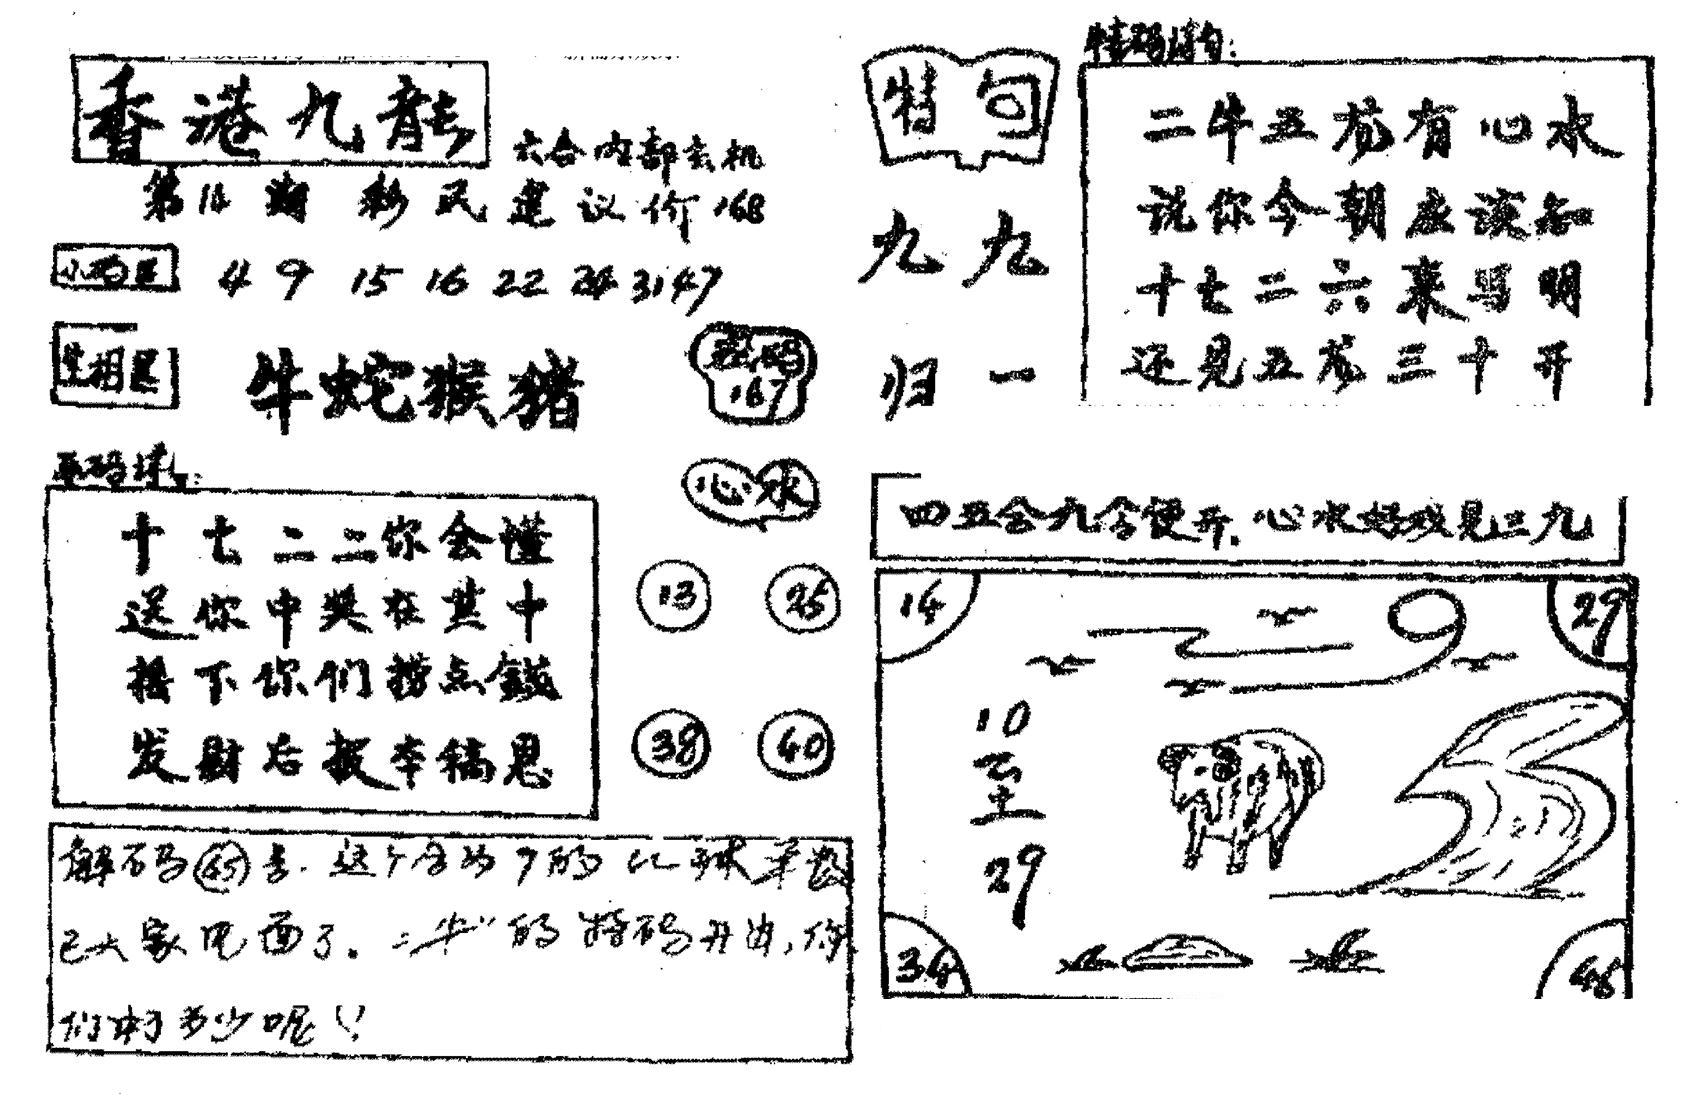 香港九龍
六合内部玄机
第11期 彩民建议价168
4 9 15 16 22 24 31 47
生相区
牛蛇猴猪
167
心水
十七二二你会懂
送你中奖在其中
接下你们捞点錢
发财后报本稿恩
13 25
38 40
解码
已大家见面了. "牛"的特码开出,你
们才多少呢!!
特句
九九
归一
特码诗句:
二牛五龙有心水
说你今朝应该知
十七二六来马明
还见五龙三十开
四五合九合便开.心水好戏见三九
14 29
10
至
29
34